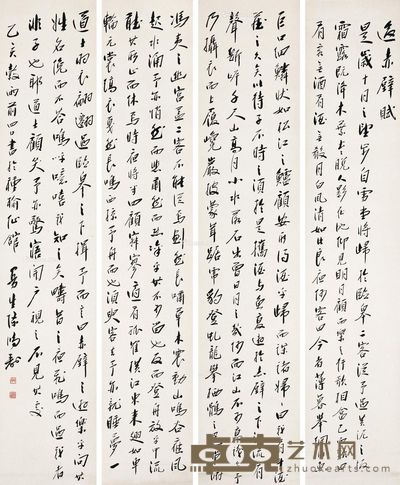 後赤壁賦
是歲十月之望步自雪堂將歸於臨皋二客從予過黃泥之坂
霜露既降木葉盡脫人影在地仰見明月顧而樂之行歌相答已而歎曰
有客無酒有酒無肴月白風清如此良夜何客曰今者薄暮舉網得魚
巨口細鱗狀如松江之鱸顧安所得酒乎歸而謀諸婦婦曰我有斗酒
藏之久矣以待子不時之須於是攜酒與魚復遊於赤壁之下江流有
聲斷岸千尺山高月小水落石出曾日月之幾何而江山不可復識矣予
乃攝衣而上履巉巖披蒙茸踞虎豹登虬龍攀栖鶻之危巢俯
馮夷之幽宮蓋二客不能從焉劃然長嘯草木震動山鳴谷應風
起水涌予亦悄然而悲肅然而恐凜乎其不可留也反而登舟放乎中流
聽其所止而休焉時夜將半四顧寂寥適有孤鶴橫江東來翅如車
輪玄裳縞衣戛然長鳴掠予舟而西也須臾客去予亦就睡夢一
道士羽衣翩躚過臨皋之下揖予而言曰赤壁之遊樂乎問其
姓名俛而不答嗚呼噫嘻我知之矣疇昔之夜飛鳴而過我者
非子也耶道士顧笑予亦驚寤開戶視之不見其處
乙亥穀雨前四日書於種榆仙館 曼生陳鴻壽